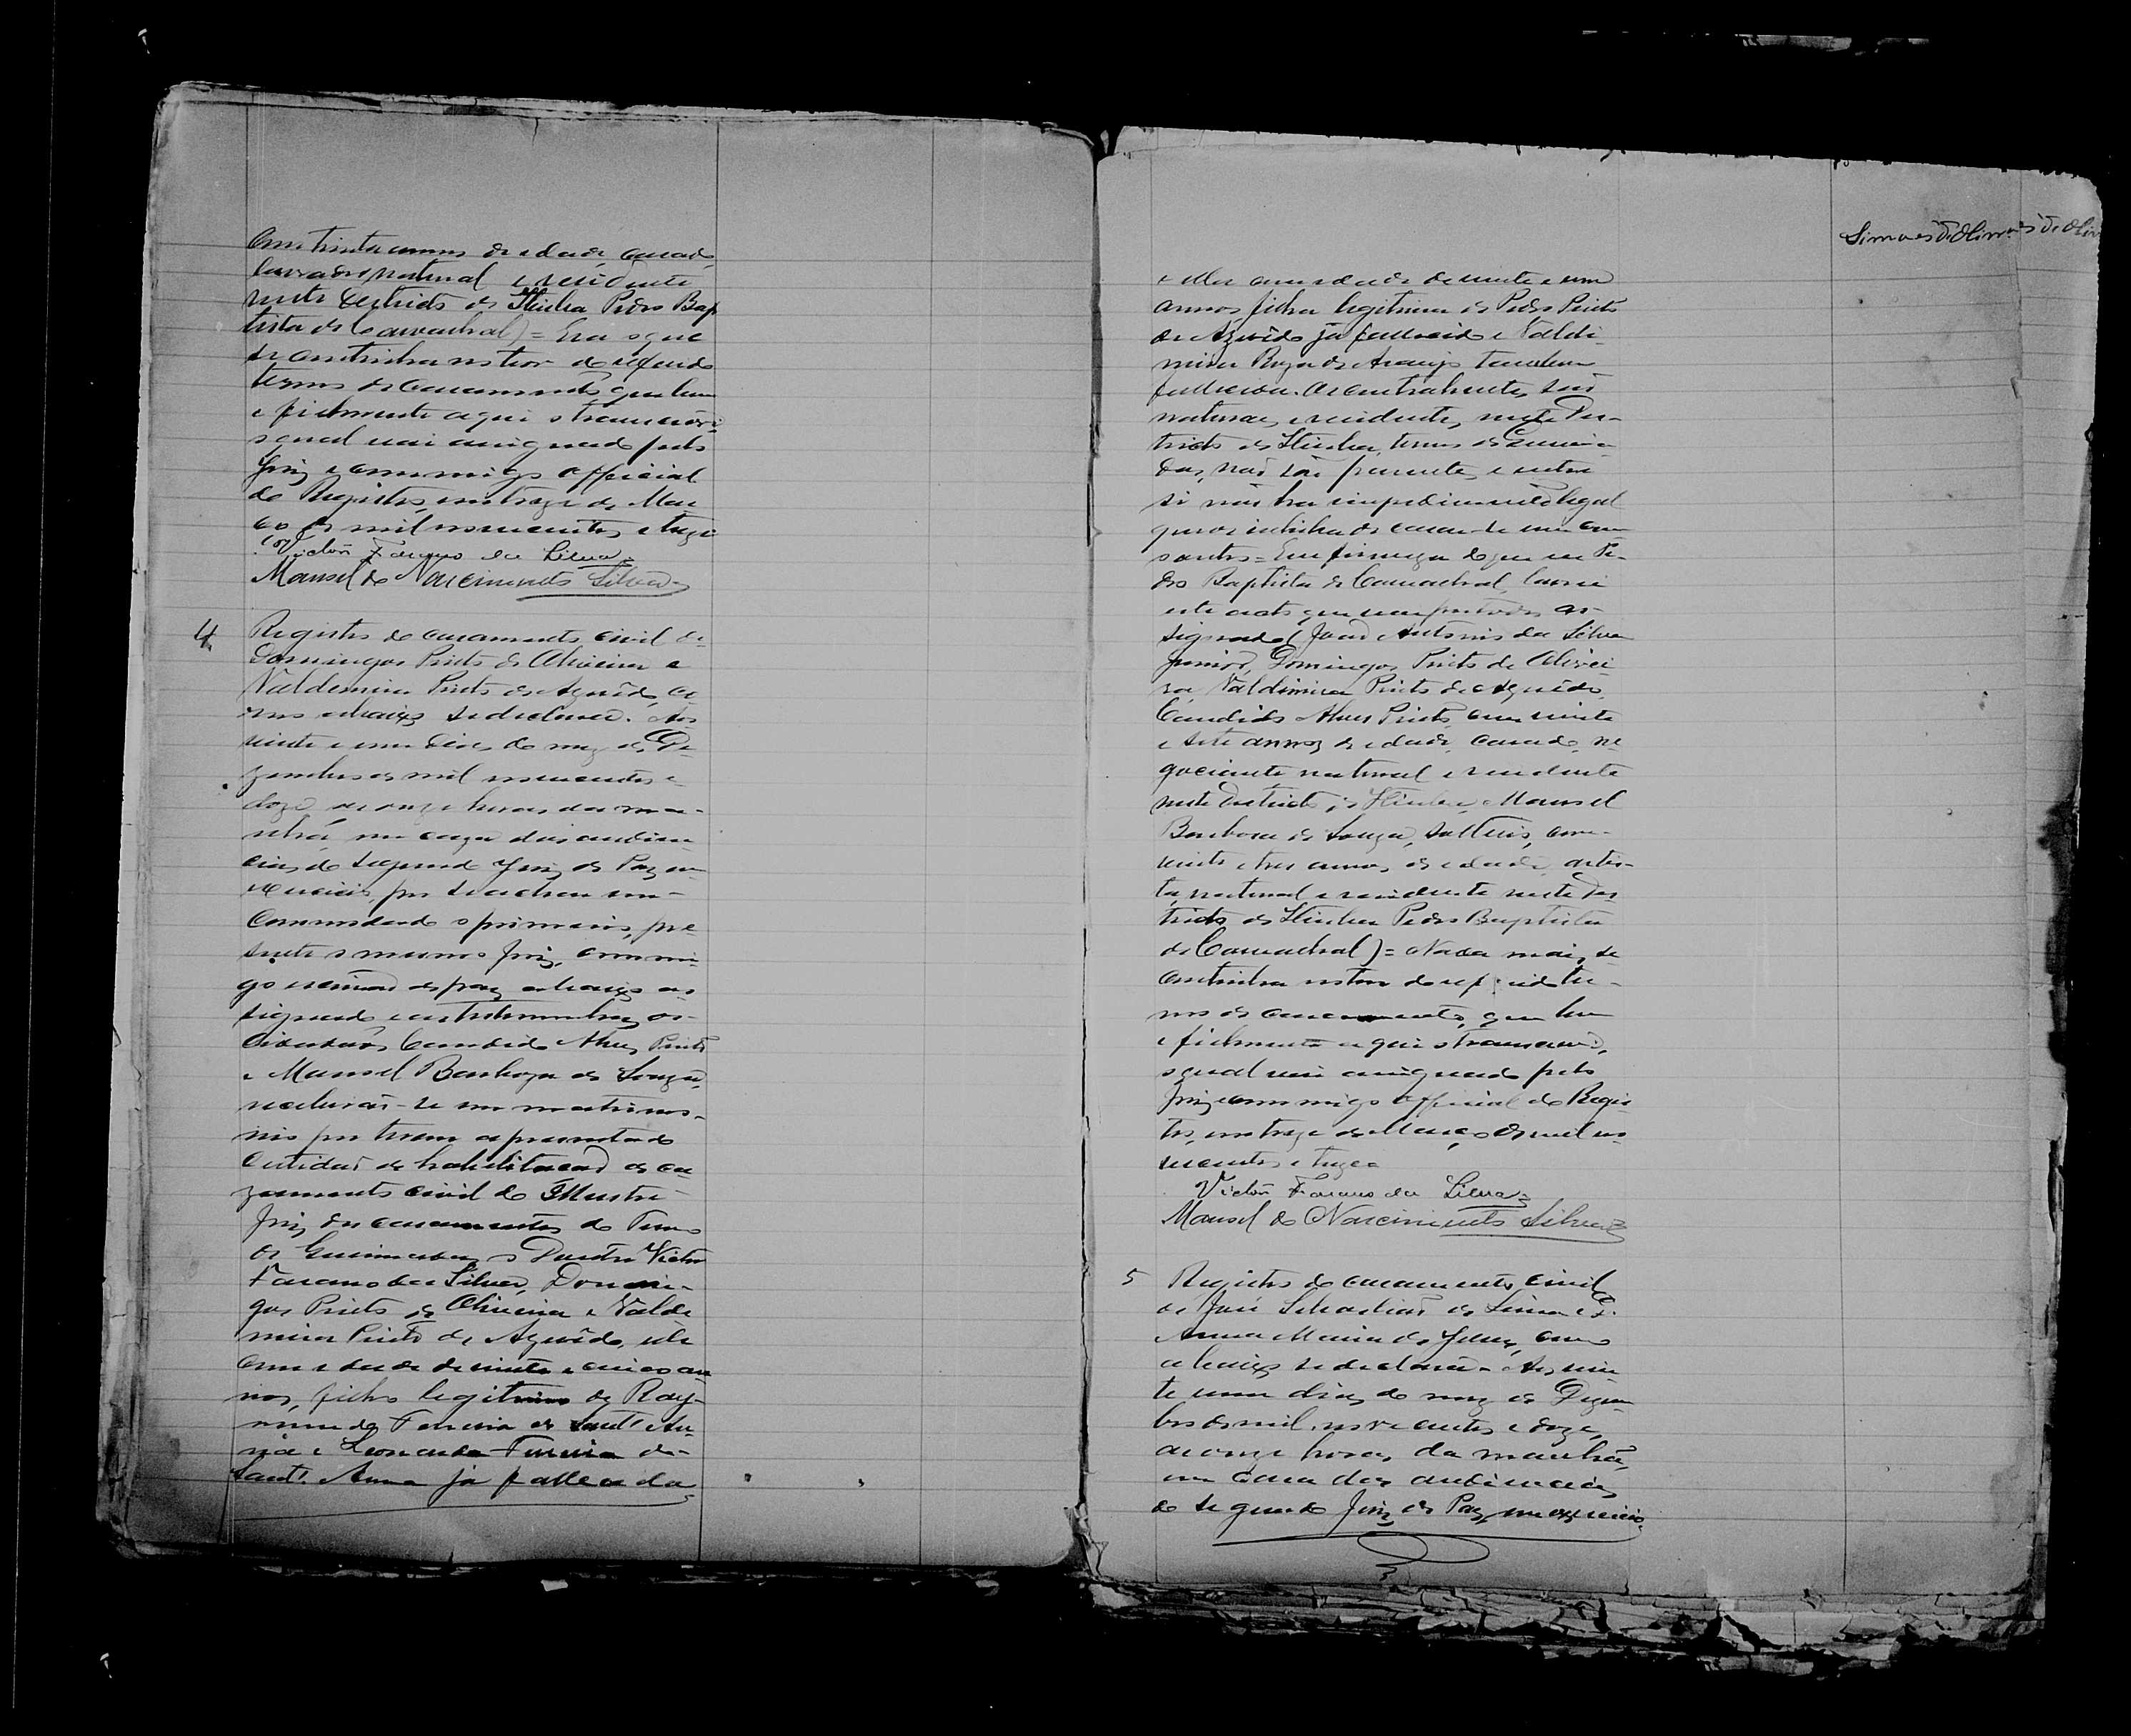 com trinta annos de edade, casado,
lavrador, natural e residente
neste Destricto de Ilhinha Pedro Bap
tista de Carvalhal) = Era o que
se continha no teor do referido
termo de casamento, que bem
e fielmente aqui o transcrevi
o qual vai assignado pelo
Juiz e commigo official
do Registro, em treze de Mar
ço de mil novecentos e treze
Victor Farano da Silva
Manoel do Nascimento Silva
4
Registro do casamento civil de
Domingos Pinto de Oliveira e
Valdemira Pinto de Azevêdo, co
mo abaixo se declara. Aos
vinte e um dias do mez de De
zembro de mil novecentos e
doze, as onze horas da ma-
nhã, na caza das audien
cias do segundo Juiz de Paz em
exercicio, por se achar in-
commodado o primeiro, pre
sente o mesmo Juiz, commi
go escrivão de paz abaixo as
signado e as testemunhas os
Cidadãos Candido Alves Pinto
e Manoel Barboza de Souza,
receberão-se em matrimo-
nio por terem apresentado
Certidão de habilitação de ca
zamento civil do Illustre
Juiz dos casamentos do Termo
de o Doutor Victor
Farano da Silva, Domin-
gos Pinto de Oliveira e Valde
mira Pinto de Azevêdo, elle
com edade de vinte e cinco an
nos, filho legitimo de Ray-
mundo Ferreira de Sant'An
na e Leonarda Ferreira de
Sant'Anna já fallecida
Simões de Olim
e ella com edade de vinte e um
annos, filha legitima de Pedro Pinto
de Azevêdo já fallecido e Valde
mira Roza de Araujo tambem
fallecida. Os contrahentes são
naturaes e residentes neste Des-
tricto de Ilhinha, termo de
não são parentes, e entre
si não ha impedimento legal
que os inhiba de casar-se um com
o outro = Em firmeza do que eu Pe-
dro Baptista de Carvalhal, lavrei
este acto que vai por todos as-
signado (João Antonio da Silva
Junior, Domingos Pinto de Olivei
ra, Valdimira Pinto de Azevêdo,
Candido Alves Pinto, com vinte
e sete annos de edade, casado, ne
gociante natural e residente
neste Destricto de Ilhinha, Manoel
Barboza de Souza, solteiro, com
vinte e tres annos de edade, artis-
ta, natural e residente neste Des
tricto de Ilhinha Pedro Baptista
de Carvalhal) = Nada mais se
continha no teor do referido ter-
mo de casamento, que bem
e fielmente aqui o transcrevi,
o qual vai assignado pelo
Juiz e commigo official do Regis
tro, em treze de Março de mil no
vecentos e treze
Victor Farano da Silva
Manoel do Nascimento Silva
5
Registro do casamento civil
de José Sebastião de Lima e D.
Anna Maria de Jesus, como
abaixo se declara. Aos vin
te um dias do mez de Dezem
bro de mil novecentos e doze,
as onze horas da manhã,
na Casa das audiencias
do segundo Juiz de Paz em exercicio